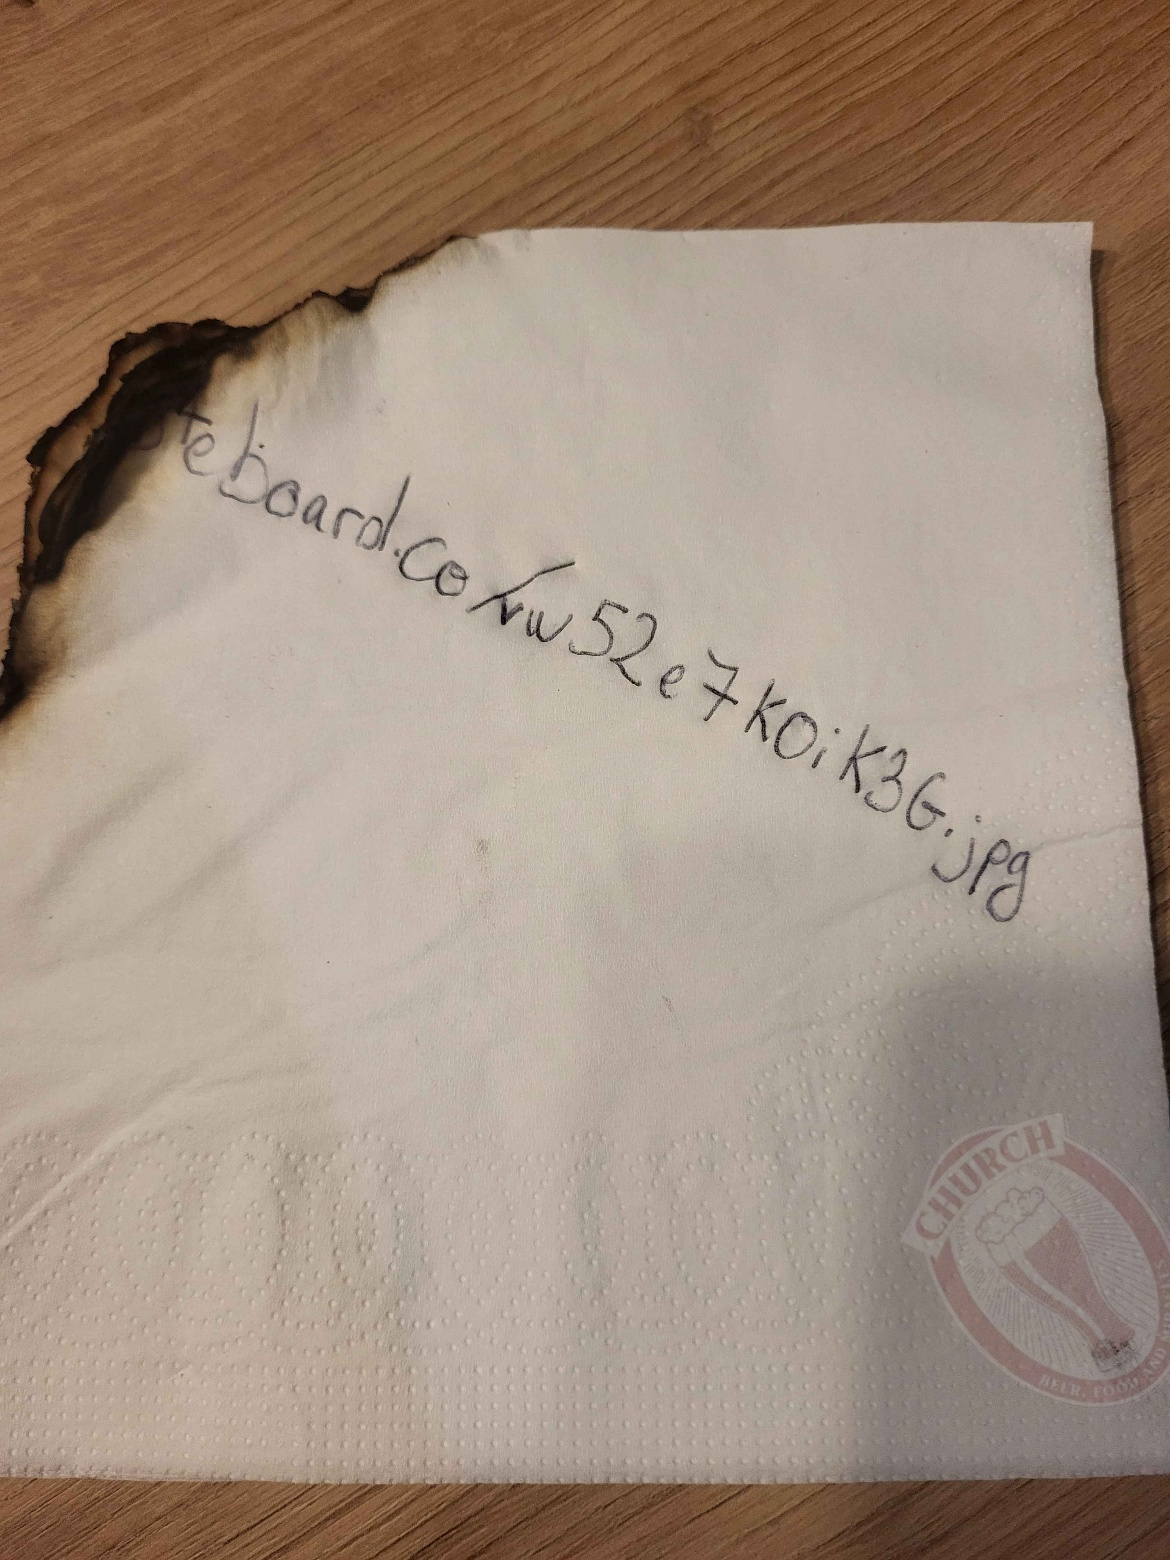 teboard.co/vw52e7KOiK3G.jpg
CHURCH
BEER, FOOD AND